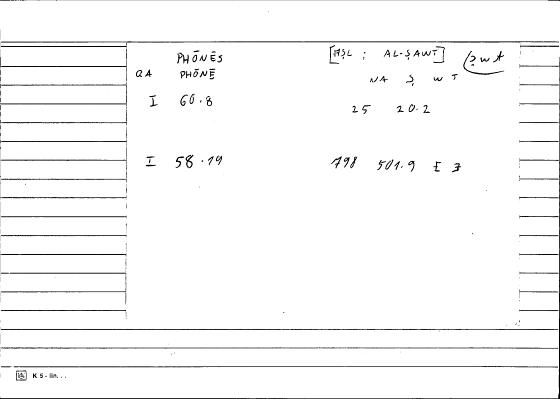 PHŌNĒS [AṢL : AL-ṢAWT] ṣwt
QA PHŌNĒ NA Ṣ W T
I 60.8 25 20.2
I 58.19 798 501.9 [ ]
K 5 - lin. . .